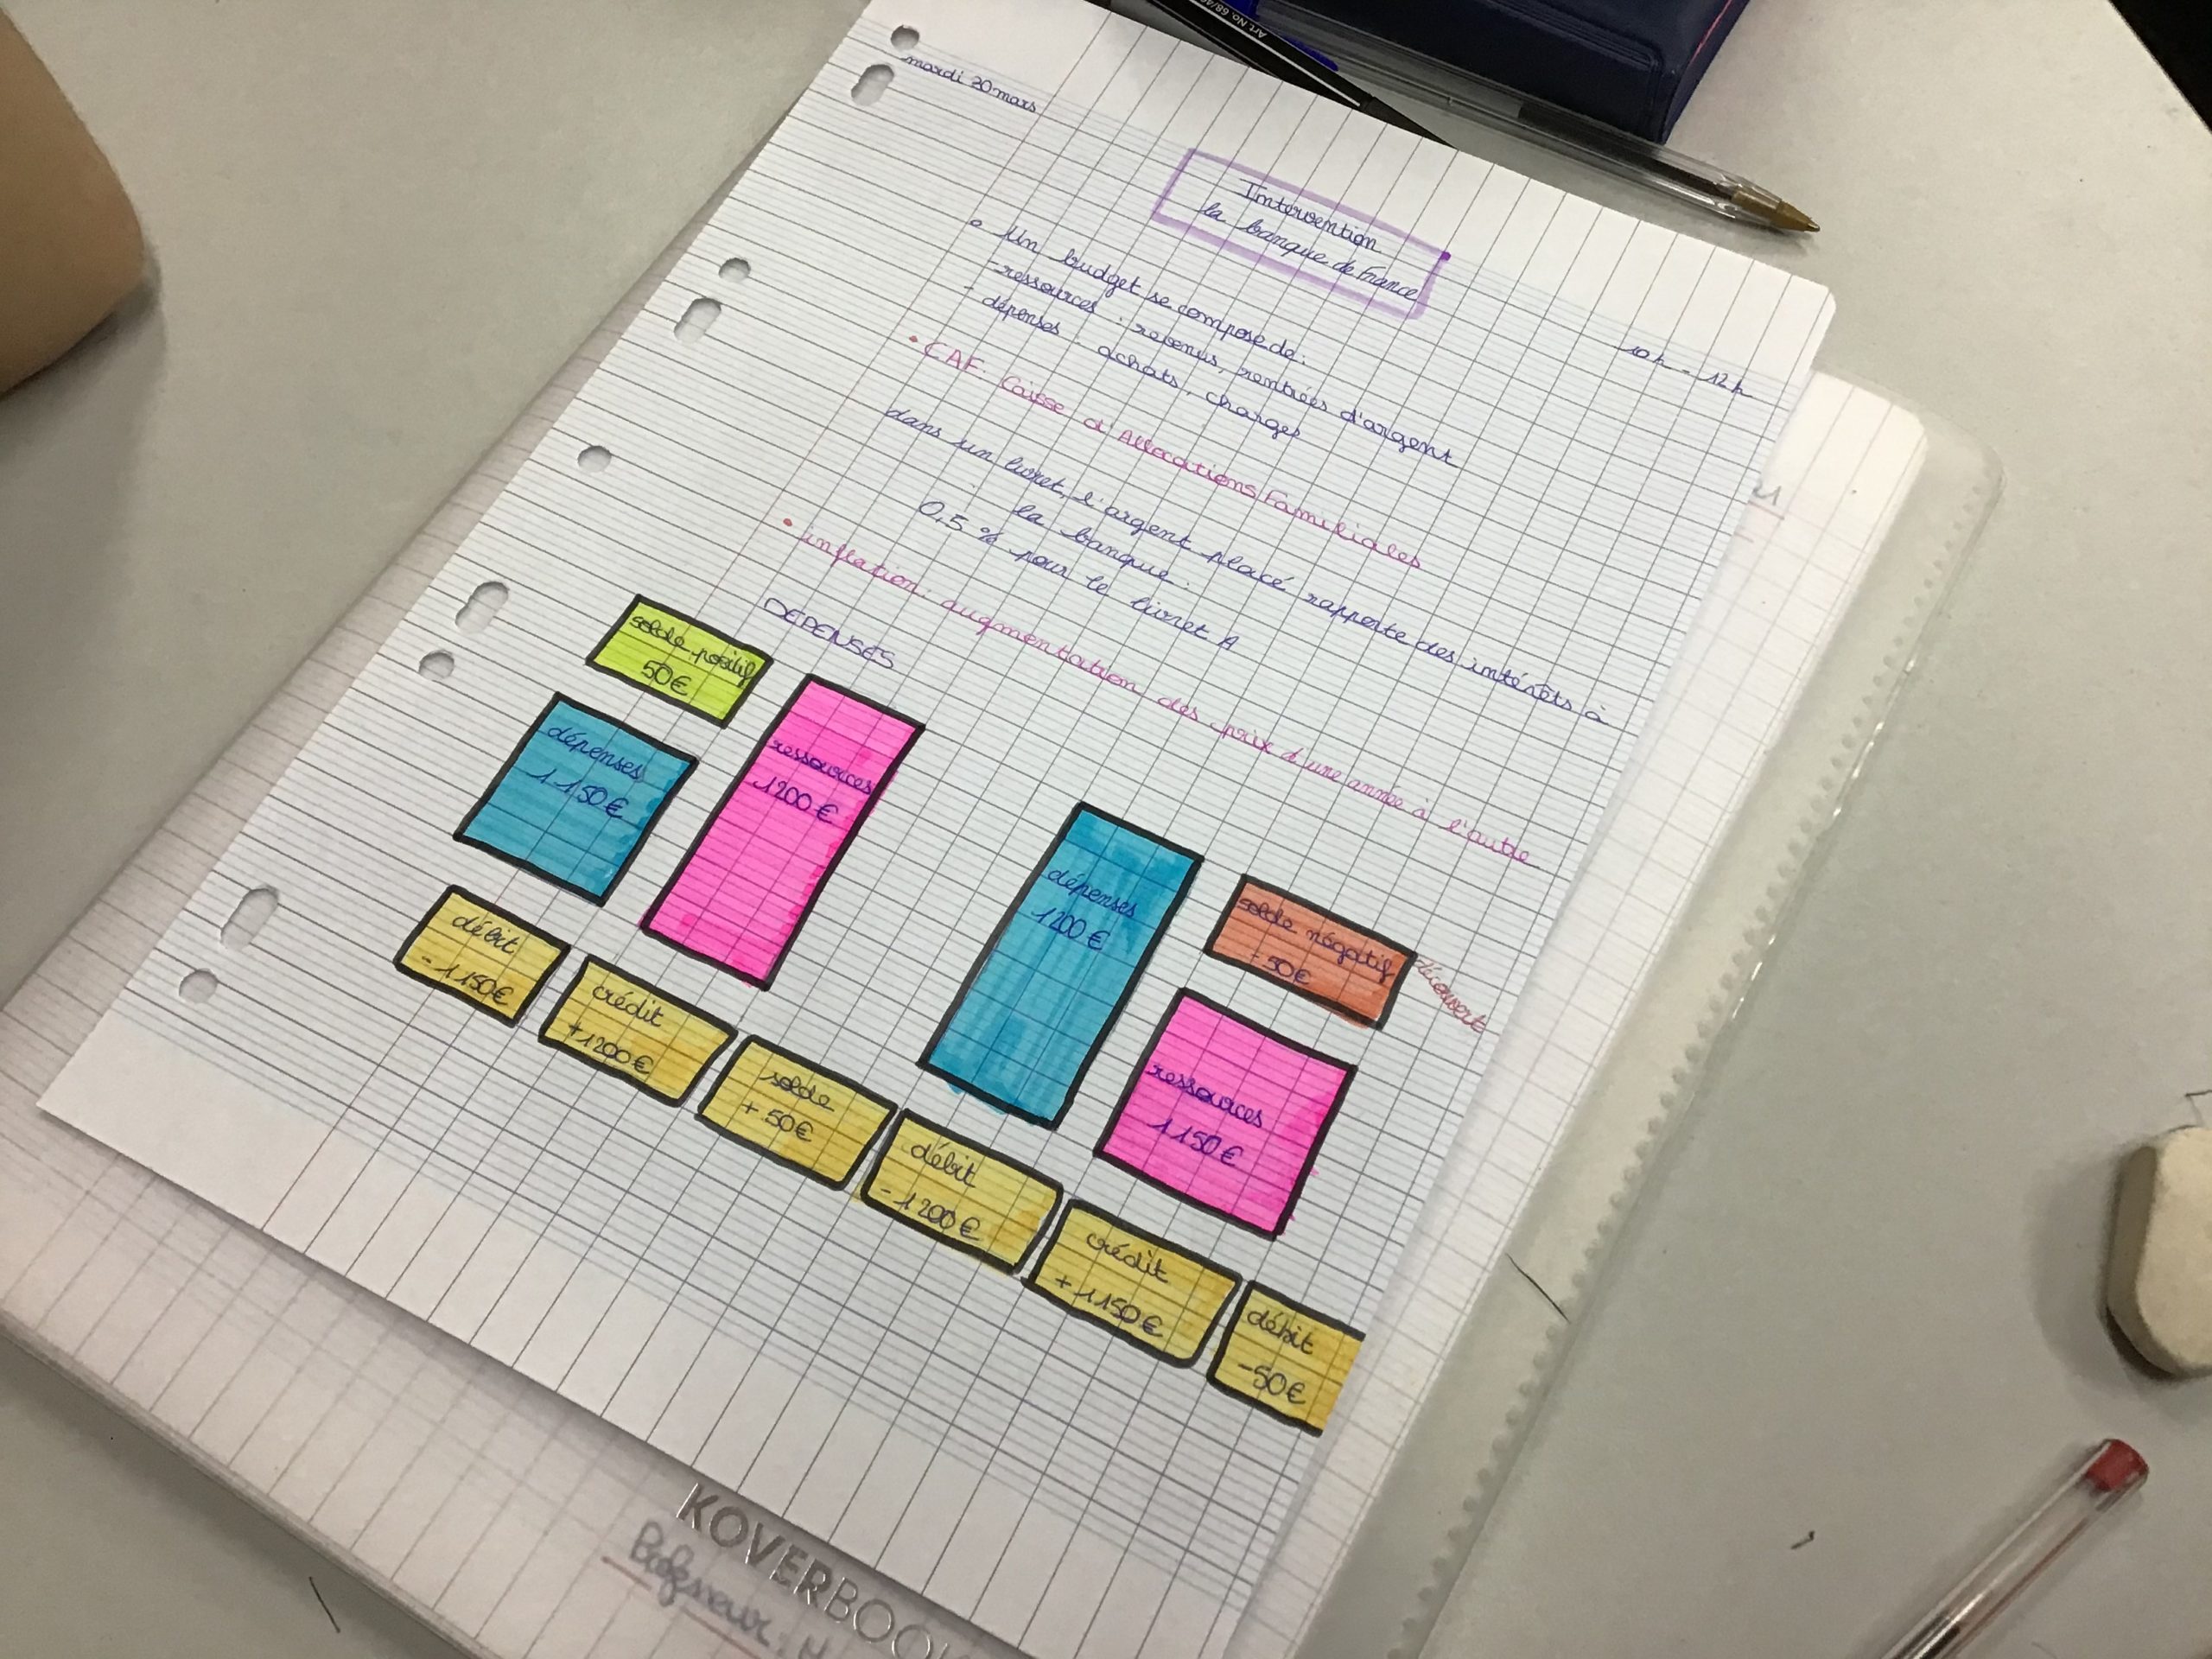 mardi 30 mars
Intervention
la banque de France
10h - 12h
Un budget se compose de :
- ressources : revenus, rentrées d'argent
- dépenses : achats, charges
• CAF : Caisse d'Allocations Familiales
dans un livret, l'argent placé rapporte des intérêts à
la banque.
0,5 % pour le livret A
• inflation : augmentation des prix d'une année à l'autre
DEPENSES
solde positif
50€
dépenses
1150€
ressources
1200€
dépenses
1200€
solde négatif
- 50€
découvert
ressources
1150€
débit
- 1150€
crédit
+ 1200€
solde
+ 50€
débit
- 1200€
crédit
+ 1150€
débit
-50€
KOVERBOO
Professeur :
Art. No. 68/